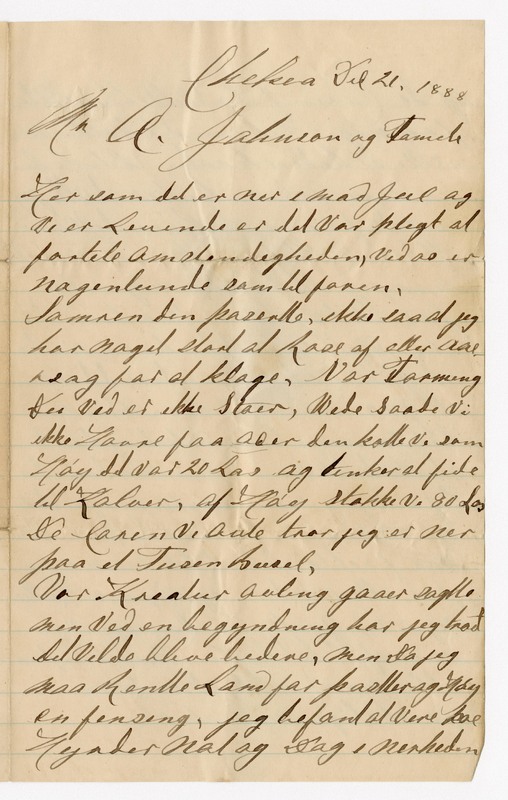 Chelsea Des 21. 1888
Mr A. Johnson og Famele
Her som det er ner i mod Juel og
Vi er Levende er det Vor pligt at
fortele Omstendigheden, Ved os er
nogenlunde som til foren,
Somren den paserte, ikke saa at jeg
har noget stort at Rose af eller Aar-
sag for at klage, Vor Farming
Des Ved er ikke Stoer, Wede Saade Vi
ikke Havre paa den kotte Vi som
Höy det Var 20 Las og tenker at fide
til Kalver, af Höy stakke Vi 80 Los
De Coren Vi avle tror jeg er ner
paa et Tusen busel,
Vor Kreatur avling gaaer sagtte
men Ved en begyndning har jeg trod
det Vilde blive bedere, men Da jeg
maa Rentte Land for pastter og Höy
en fensing, jeg befant at Vere hoe
Hynder Nat og Dag i nerheden